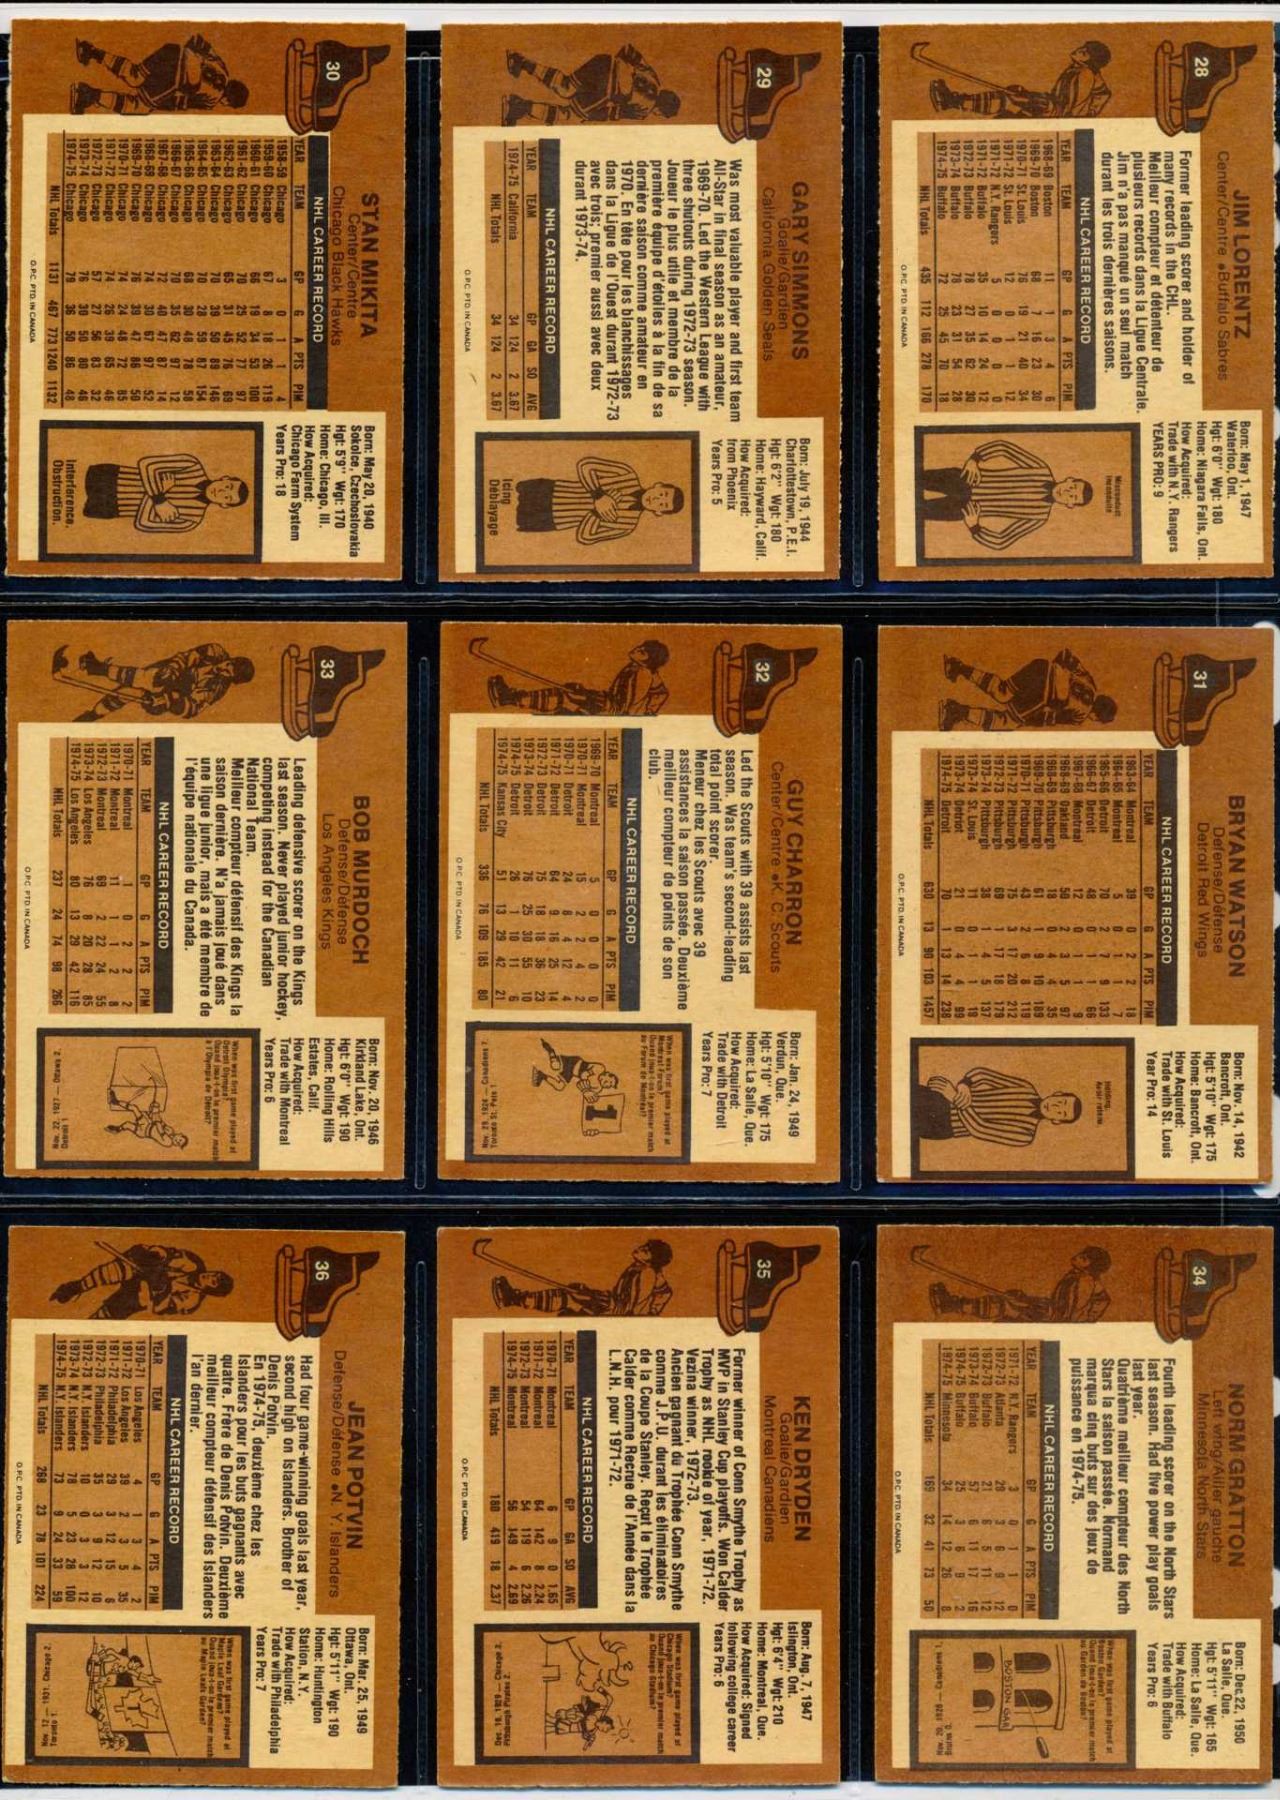 28
JIM LORENTZ
Center/Centre • Buffalo Sabres
Former leading scorer and holder of
many records in the CHL.
Meilleur compteur et détenteur de
plusieurs records dans la Ligue Centrale.
Jim n'a pas manqué un seul match
durant les trois dernières saisons.
NHL CAREER RECORD
YEAR TEAM GP G A PTS PIM
1968-69 Boston 11 1 3 4 6
1969-70 Boston 68 7 16 23 30
1970-71 St. Louis 76 19 21 40 34
1971-72 St. Louis 12
1971-72 N.Y. Rangers 5 0 0 0 0
1971-72 Buffalo 35 10 14 24 12
1972-73 Buffalo 78 27 35 62 30
1973-74 Buffalo 78 23 31 54 28
1974-75 Buffalo 72 25 45 70 18
NHL Totals 435 112 166 278 170
O.P.C. PTD. IN CANADA
Born: May 1, 1947
Waterloo, Ont.
Hgt: 6'0" Wgt: 180
Home: Niagara Falls, Ont.
How Acquired:
Trade with N.Y. Rangers
YEARS PRO: 9
Misconduct
29
GARY SIMMONS
Goalie/Gardien
California Golden Seals
Was most valuable player and first team
All-Star in final season as an amateur,
1969-70. Led the Western League with
three shutouts during 1972-73 season.
Joueur le plus utile et membre de la
première équipe d'étoiles à la fin de sa
dernière saison comme amateur en
1970. En tête pour les blanchissages
dans la Ligue de l'Ouest durant 1972-73
avec trois; premier aussi avec deux
durant 1973-74.
NHL CAREER RECORD
YEAR TEAM GP GA SO AVG
1974-75 California 34 124 2 3.67
NHL Totals 34 124 2 3.67
O.P.C. PTD. IN CANADA
Born: July 19, 1944
Charlottestown, P.E.I.
Hgt: 6'2" Wgt: 180
Home: Hayward, Calif.
How Acquired:
from Phoenix
Years Pro: 5
Icing
Dablayage
30
STAN MIKITA
Center/Centre
Chicago Black Hawks
NHL CAREER RECORD
YEAR TEAM GP G A PTS PIM
1958-59 Chicago 3 0 1 1 4
1959-60 Chicago 67 8 18 26 119
1960-61 Chicago 66 19 34 53 100
1961-62 Chicago 70 25 52 77 97
1962-63 Chicago 65 31 45 76 69
1963-64 Chicago 70 39 50 89 146
1964-65 Chicago 70 28 59 87 154
1965-66 Chicago 68 30 48 78 58
1966-67 Chicago 70 35 62 97 12
1967-68 Chicago 72 40 47 87 14
1968-69 Chicago 74 30 67 97 52
1969-70 Chicago 76 39 47 86 50
1970-71 Chicago 74 24 48 72 85
1971-72 Chicago 74 26 39 65 46
1972-73 Chicago 57 27 56 83 32
1973-74 Chicago 76 30 50 80 46
1974-75 Chicago 79 36 50 86 48
NHL Totals 1131 467 773 1240 1132
O.P.C. PTD. IN CANADA
Born: May 20, 1940
Sokolce, Czechoslovakia
Hgt: 5'9" Wgt: 170
Home: Chicago, Ill.
How Acquired:
Chicago Farm System
Years Pro: 18
Interference.
Obstruction.
31
BRYAN WATSON
Defense/Défense
Detroit Red Wings
NHL CAREER RECORD
YEAR TEAM GP G A PTS PIM
1963-64 Montreal 39 0 2 2 18
1964-65 Montreal 5 0 1 1 7
1965-66 Detroit 70 2 7 9 133
1966-67 Detroit 48 0 1 1 66
1967-68 Montreal 12 0 1 1 9
1968-69 Oakland 50 2 3 5 97
1968-69 Pittsburgh 18 0 4 4 35
1969-70 Pittsburgh 61 1 9 10 189
1970-71 Pittsburgh 43 2 6 8 119
1971-72 Pittsburgh 75 3 17 20 212
1972-73 Pittsburgh 69 1 17 18 179
1973-74 Pittsburgh 38 1 4 5 137
1973-74 St. Louis 11 0 1 1 19
1973-74 Detroit 21 0 4 4 99
1974-75 Detroit 70 1 13 14 238
NHL Totals 630 13 90 103 1457
O.P.C. PTD. IN CANADA
Born: Nov. 14, 1942
Bancroft, Ont.
Hgt: 5'10" Wgt: 175
Home: Bancroft, Ont.
How Acquired:
Trade with St. Louis
Year Pro: 14
Holding.
32
GUY CHARRON
Center/Centre • K. C. Scouts
Led the Scouts with 39 assists last
season. Was team's second-leading
total point scorer.
Meneur chez les Scouts avec 39
assistances la saison passée. Deuxième
meilleur compteur de points de son
club.
NHL CAREER RECORD
YEAR TEAM GP G A PTS PIM
1969-70 Montreal 5 0 0 0 0
1970-71 Montreal 15 2 2 4 2
1970-71 Detroit 24 8 4 12 4
1971-72 Detroit 64 9 16 25 14
1972-73 Detroit 75 18 18 36 23
1973-74 Detroit 76 25 30 55 10
1974-75 Detroit 26 1 10 11 6
1974-75 Kansas City 51 13 29 42 21
NHL Totals 336 76 109 185 80
O.P.C. PTD. IN CANADA
Born: Jan. 24, 1949
Verdun, Que.
Hgt: 5'10" Wgt: 175
Home: La Salle, Que.
How Acquired:
Trade with Detroit
Years Pro: 7
When was first game played at
Montreal Forum?
Quand joua-t-on le premier match
au Forum de Montréal?
1
33
BOB MURDOCH
Defense/Défense
Los Angeles Kings
Leading defensive scorer on the Kings
last season. Never played junior hockey,
competing instead for the Canadian
National Team.
Meilleur compteur défensif des Kings la
saison dernière. N'a jamais joué dans
une ligue junior, mais a été membre de
l'équipe nationale du Canada.
NHL CAREER RECORD
YEAR TEAM GP G A PTS PIM
1970-71 Montreal 1 0 2 2 2
1971-72 Montreal 11 1 1 2 8
1972-73 Montreal 69 2 22 24 55
1973-74 Los Angeles 76 8 20 28 85
1974-75 Los Angeles 80 13 29 42 116
NHL Totals 237 24 74 98 266
O.P.C. PTD. IN CANADA
Born: Nov. 20, 1946
Kirkland Lake, Ont.
Hgt: 6'0" Wgt: 190
Home: Rolling Hills
Estates, Calif.
How Acquired:
Trade with Montreal
Years Pro: 6
When was first game played at
Detroit Olympia?
Quand joua-t-on le premier match
à l'Olympia de Détroit?
34
NORM GRATTON
Left wing/Ailier gauche
Minnesota North Stars
Fourth leading scorer on the North Stars
last season. Had five power play goals
last year.
Quatrième meilleur compteur des North
Stars la saison passée. Normand
marqua cinq buts sur des jeux de
puissance en 1974-75.
NHL CAREER RECORD
YEAR TEAM GP G A PTS PIM
1971-72 N.Y. Rangers 3 0 1 1 0
1972-73 Atlanta 29 3 6 9 12
1972-73 Buffalo 21 6 5 11 12
1973-74 Buffalo 57 6 11 17 16
1974-75 Buffalo 25 3 6 9 2
1974-75 Minnesota 34 14 12 26 8
NHL Totals 169 32 41 73 50
O.P.C. PTD. IN CANADA
Born: Dec. 22, 1950
La Salle, Que.
Hgt: 5'11" Wgt: 165
Home: La Salle, Que.
How Acquired:
Trade with Buffalo
Years Pro: 6
When was first game played at
Boston Garden?
Quand joua-t-on le premier match
au Garden de Boston?
BOSTON GAR
35
KEN DRYDEN
Goalie/Gardien
Montreal Canadiens
Former winner of Conn Smythe Trophy as
MVP in Stanley Cup playoffs. Won Calder
Trophy as NHL rookie of year, 1971-72.
Vezina winner, 1972-73.
Ancien gagnant du Trophée Conn Smythe
comme J.P.U. durant les éliminatoires
de la Coupe Stanley. Reçut le Trophée
Calder comme Recrue de l'Année dans la
L.N.H. pour 1971-72.
NHL CAREER RECORD
YEAR TEAM GP GA SO AVG
1970-71 Montreal 6 9 0 1.65
1971-72 Montreal 64 142 8 2.24
1972-73 Montreal 54 119 6 2.26
1974-75 Montreal 56 149 4 2.69
NHL Totals 180 419 18 2.37
O.P.C. PTD. IN CANADA
Born: Aug. 7, 1947
Islington, Ont.
Hgt: 6'4" Wgt: 210
Home: Montreal, Que.
How Acquired: Signed
following college career
Years Pro: 6
When was first game played at
Chicago Stadium?
Quand joua-t-on le premier match
au Chicago Stadium?
36
JEAN POTVIN
Defense/Défense • N. Y. Islanders
Had four game-winning goals last year,
second high on Islanders. Brother of
Denis Potvin.
En 1974-75, deuxième chez les
Islanders pour les buts gagnants avec
quatre. Frère de Denis Potvin. Deuxième
meilleur compteur défensif des Islanders
l'an dernier.
NHL CAREER RECORD
YEAR TEAM GP G A PTS PIM
1970-71 Los Angeles 4 1 3 4 2
1971-72 Los Angeles 39 2 3 5 35
1971-72 Philadelphia 29 3 12 15 6
1972-73 Philadelphia 35 3 9 12 10
1972-73 N.Y. Islanders 10 0 3 3 12
1973-74 N.Y. Islanders 78 5 23 28 100
1974-75 N.Y. Islanders 73 9 24 33 59
NHL Totals 268 23 78 101 224
O.P.C. PTD. IN CANADA
Born: Mar. 25, 1949
Ottawa, Ont.
Hgt: 5'11" Wgt: 190
Home: Huntington
Station, N.Y.
How Acquired:
Trade with Philadelphia
Years Pro: 7
When was first game played at
Maple Leaf Gardens?
Quand joua-t-on le premier match
au Maple Leafs Garden?